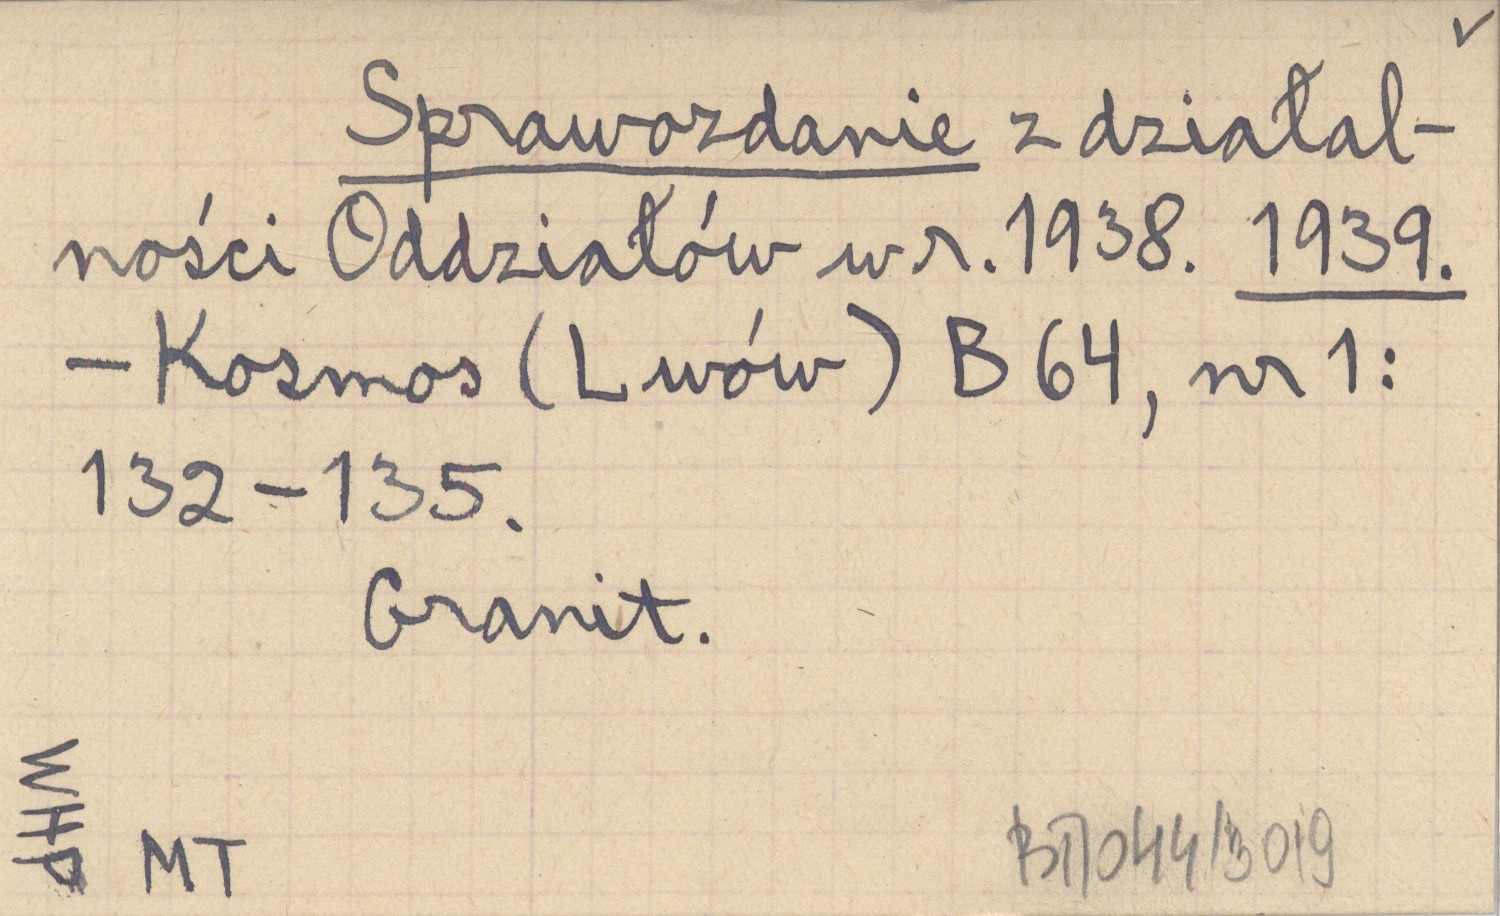 Sprawozdanie z działal-
ności Oddziałów w r. 1938. 1939.
– Kosmos (Lwów) B 64, nr 1:
132–135.
Granit.
WHP
MT